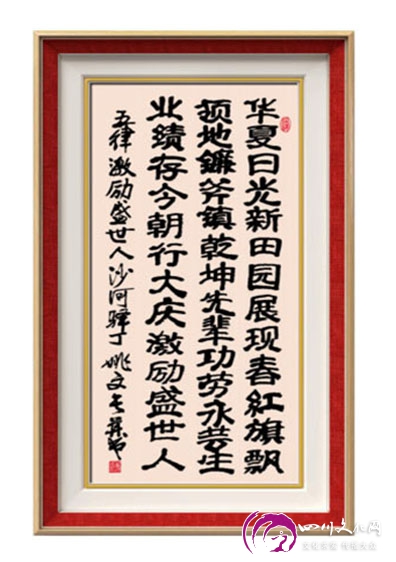 华夏日光新田园展现春紅旗飘
领地镰斧镇乾坤先辈功劳永芸生
业績存今朝行大庆激励盛世人
五律 激励盛世人 沙河驿丁 姚文长
四川文化网